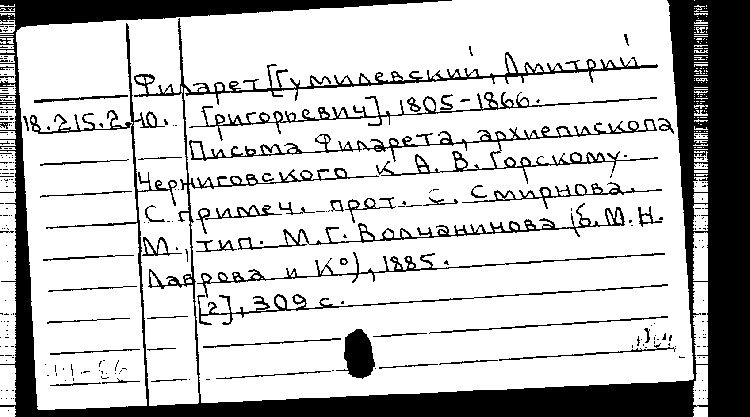 Филарет [Гумилевский, Дмитрий
18.215.2.40. Григорьевич], 1805-1866.
Письма Филарета, архиепископа
Черниговского к А. В. Горскому.
С примеч. прот. С. Смирнова.
М., тип. М. Г. Волчанинова (б. М. Н.
Лаврова и К°), 1885.
[2], 309 с.